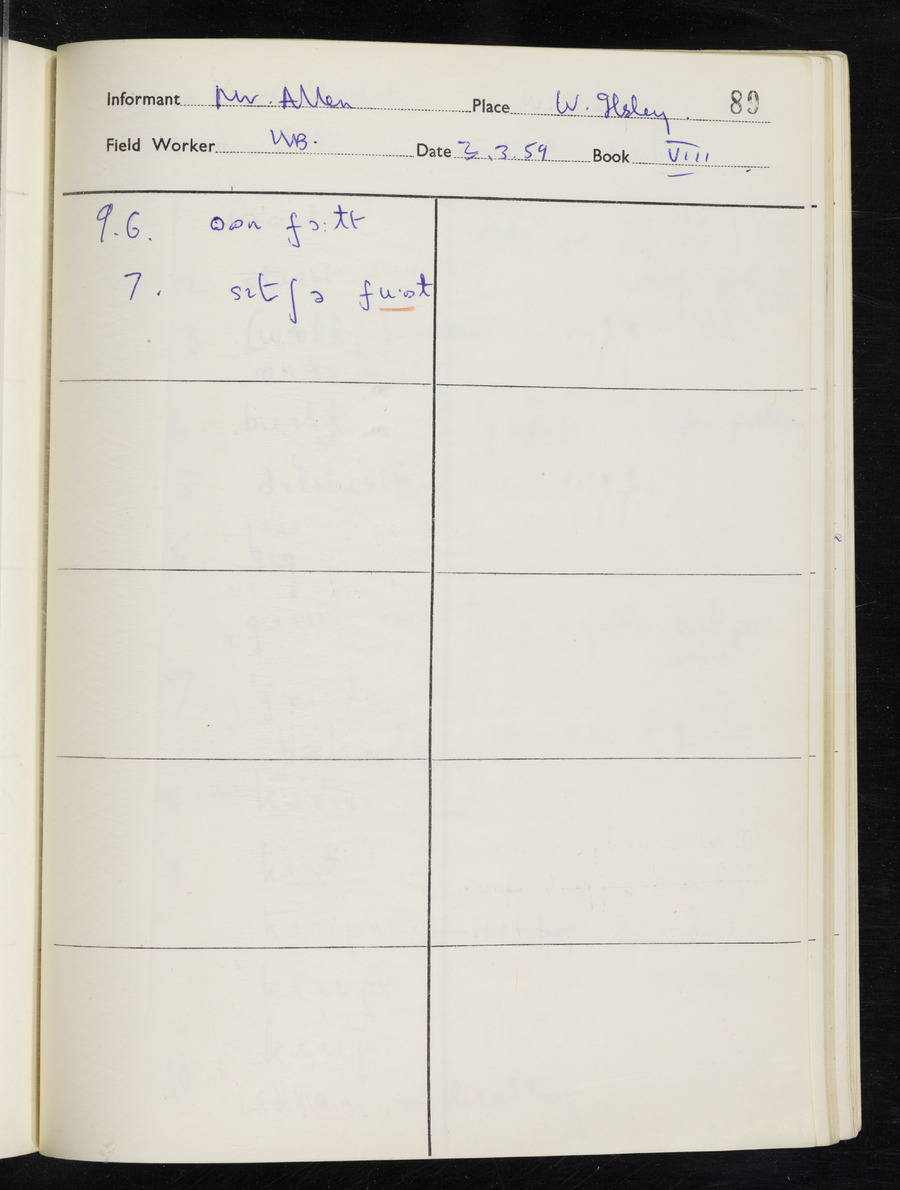 Informant Mr. Allen Place W. Ilsley. 89
Field Worker WB. Date 3.3.59 Book VIII
9.6. oən fɔ:tt
7. sɪt ʃə fu:ət